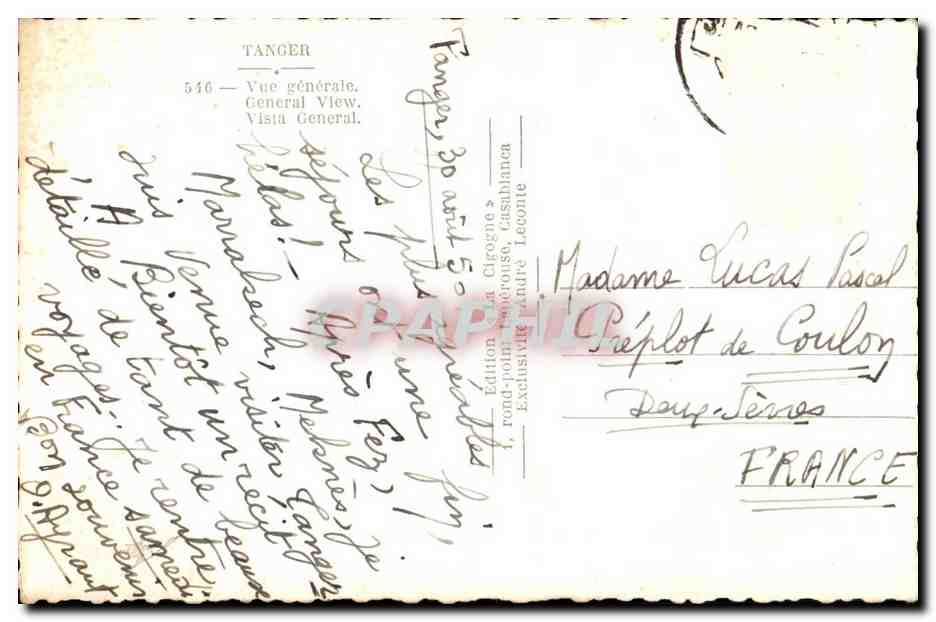 TANGER
546 — Vue générale.
General View.
Vista General.
Tanger, 30 août 50
Les plus agréables
séjours ont une fin,
hélas! - Après Fez,
Meknès, je
Marrakech, visiter Tanger
suis venue
A Bientôt un récit
détaillé de tant de beaux
voyages. Je rentre
en France samedi
Bon souvenir
Edition « La Cigogne »
1, rond-point Lapérouse, Casablanca
Exclusivité André Leconte
Madame Lucas Pascal
Préplot de Coulon
Deux-Sèvres
FRANCE
CPAPHIL